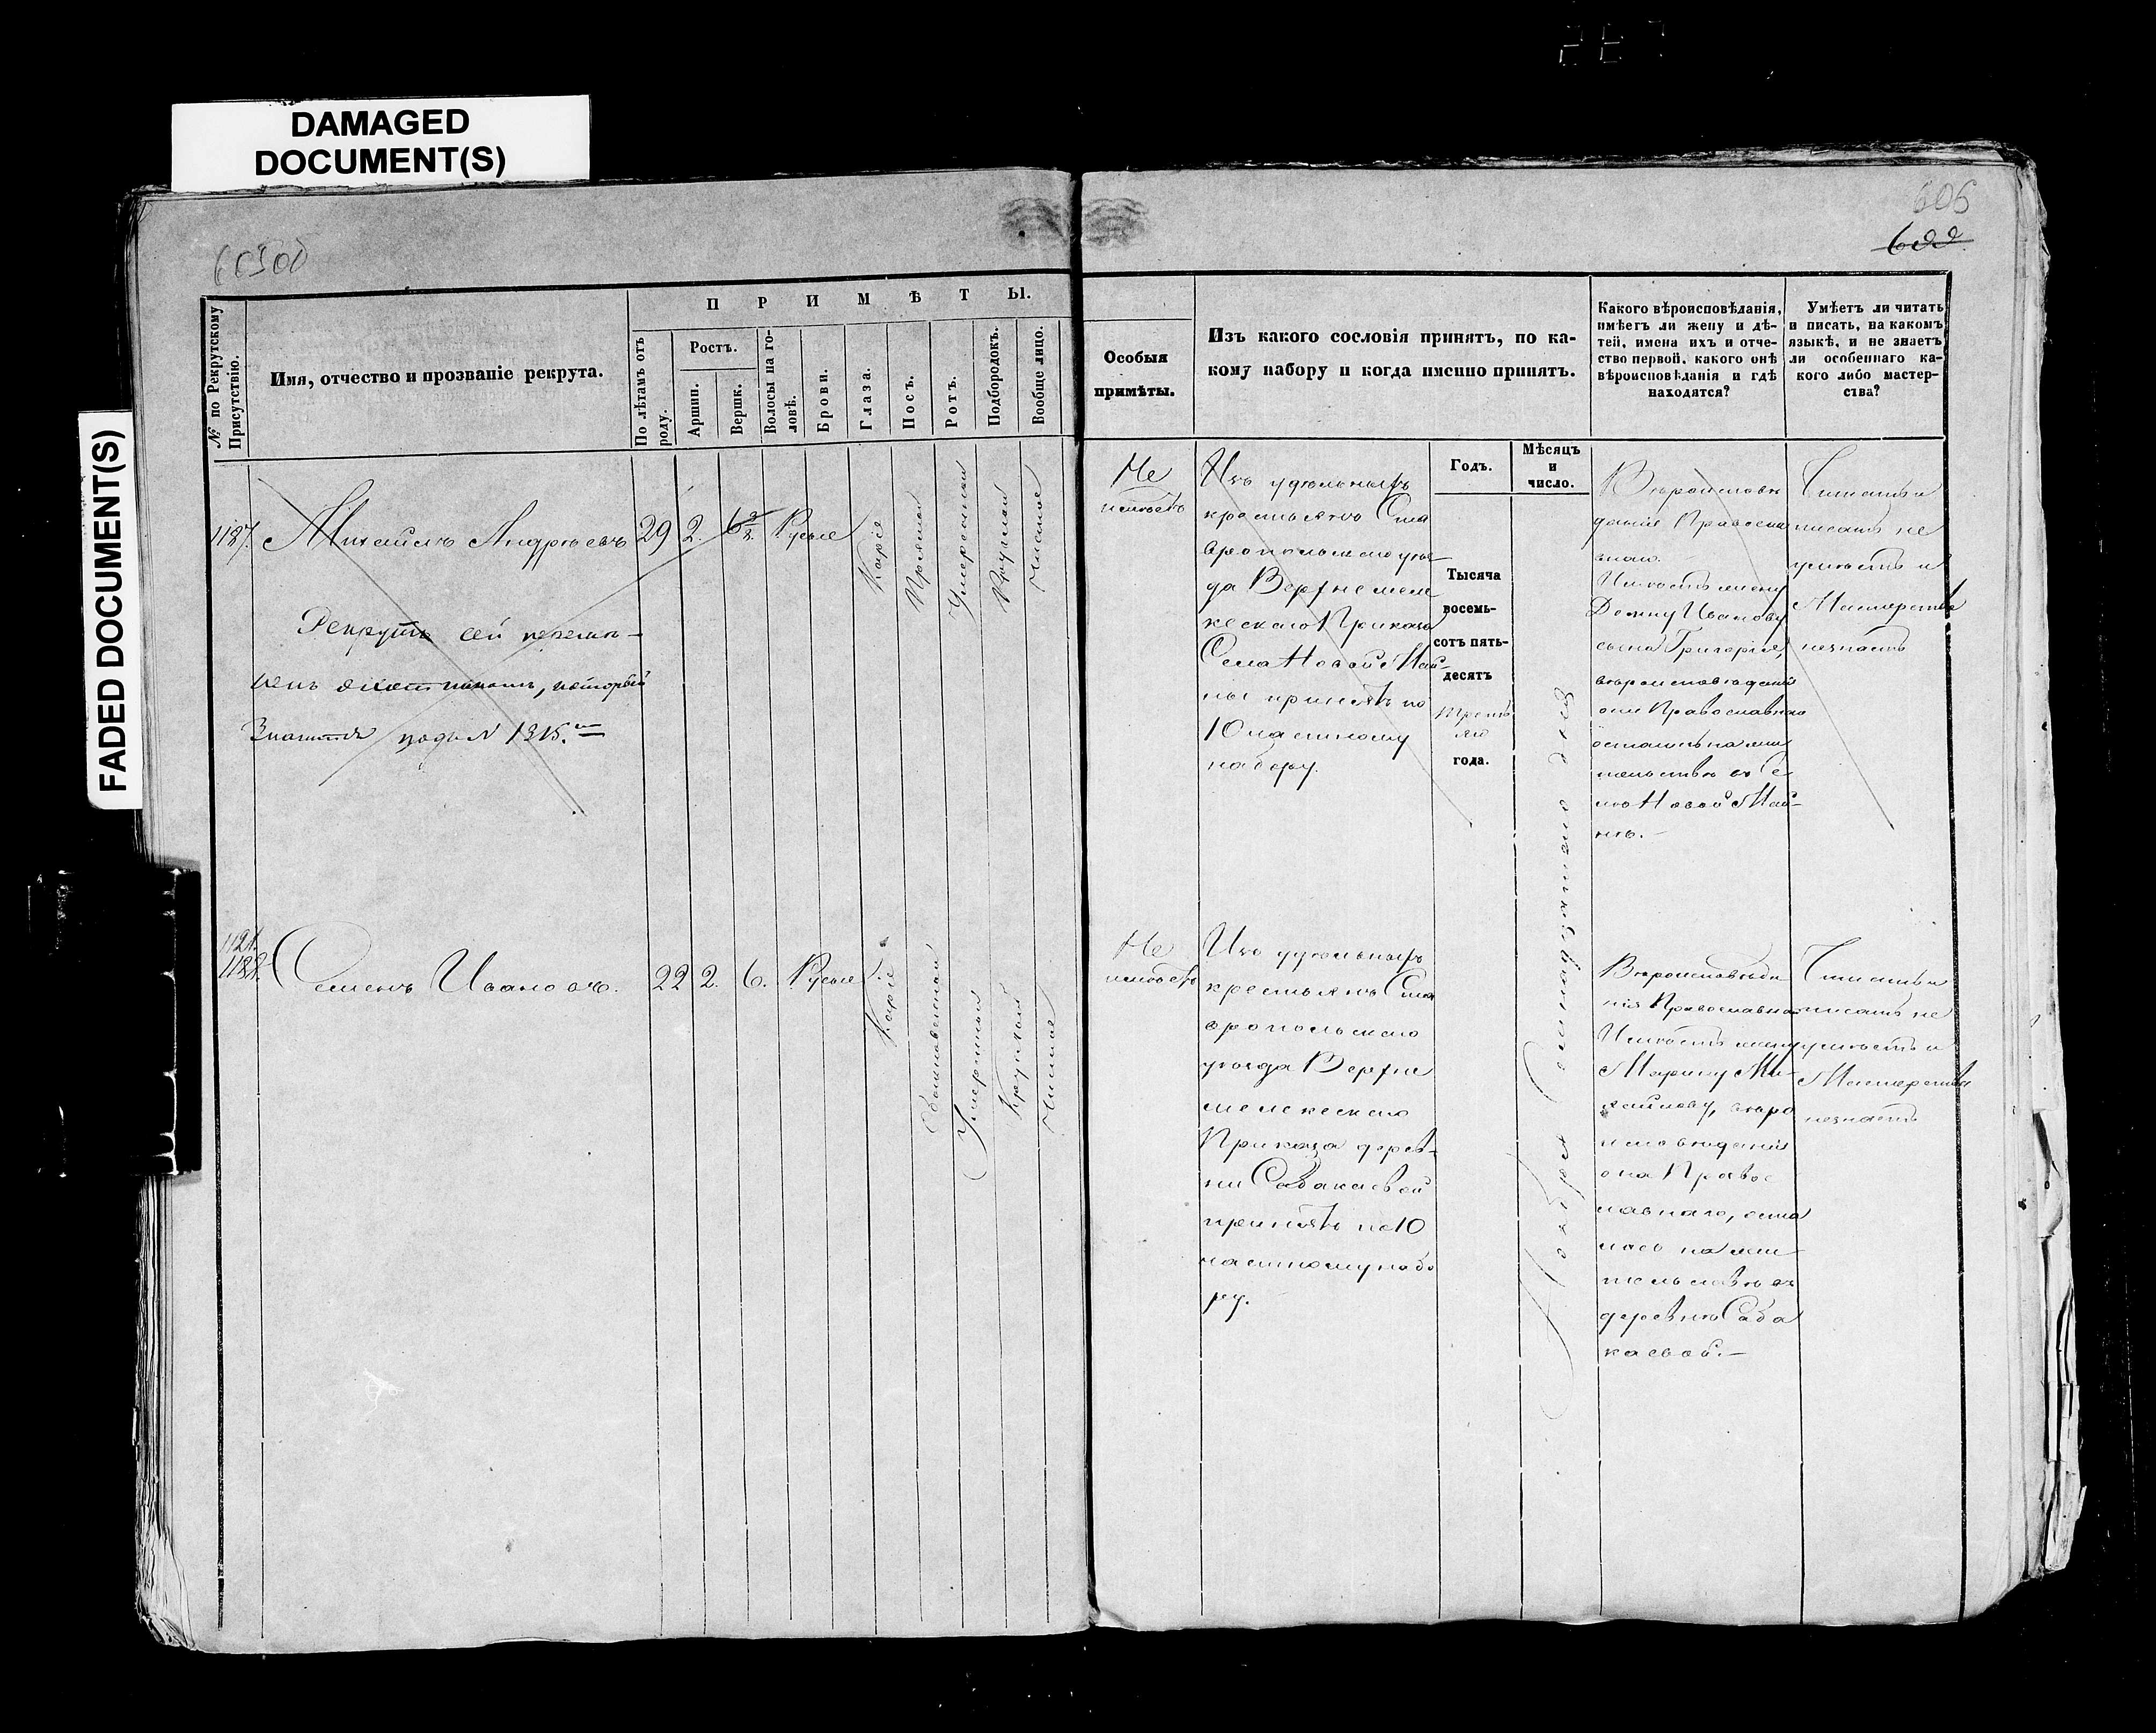 DAMAGED
DOCUMENT(S)
FADED DOCUMENT(S)
606
622
№ по Рекрутскому
Присутствію.
Имя, отчество и прозваніе рекрута.
ПРИМѢТЫ.
По лѣтамъ отъ
роду.
Ростъ.
Аршин.
Вершк.
Волосы на го-
ловѣ.
Брови.
Глаза.
Носъ.
Ротъ.
Подбородокъ.
Вообще лицо.
Особыя
примѣты.
Изъ какого сословія принятъ, по ка-
кому набору и когда именно принятъ.
Какого вѣроисповѣданія,
имѣетъ ли жену и дѣ-
тей, имена ихъ и отче-
ство первой, какого онѣ
вѣроисповѣданія и гдѣ
находятся?
Умѣетъ ли читать
и писать, на какомъ
языкѣ, и не знаетъ
ли особеннаго ка-
кого либо мастер-
ства?
Годъ.
Мѣсяцъ
и
число.
1187.
Михайлъ Андреевъ
29
2.
6 2/8
Русые
Каріе
Прямой
Умеренный
Круглой
Чистое
Рекрутъ сей
который
Значится подъ N 1315.мъ
Не
имеетъ
Изъ удельныхъ
крестьянъ Ста
вропольскаго уѣз
да Верхнемеле
кескаго Приказа
Села Новой Май-
ны принятъ по
10 частному
набору.
Тысяча
восемь-
сотъ пять-
десятъ
треть
яго
года.
Ноября семнадцатаго дня
Вѣроисповѣ
данія Правосла
внаго.
Имѣетъ жену
Домну Иванову
сына Григорія,
вѣроисповѣданія
они Православнаго
остались на жи
тельствѣ въ Се
лѣ Новой Май-
нѣ.-
Читать и
писать не
умѣетъ и
Мастерства
незнаетъ
1121.
1188.
Семенъ Ивановъ.
22
2.
6.
Русые
Каріе
Обыкновенный
Умеренный
Круглый
Чистое
Не
имеетъ
Изъ удельныхъ
крестьянъ Ста
вропольскаго
уѣзда Верхне
мелекескаго
Приказа дерев-
ни Сабакаевой
принятъ по 10
частному набо
ру.
Вѣроисповѣда
нія Православна
Имѣетъ жену
Марину Ми-
хайлову, вѣро
исповѣданія
она Правос
лавнаго, оста
лась на жи
тельствѣ въ
деревнѣ Саба
каевой.-
Читать и
писать не
умѣетъ и
Мастерства
незнаетъ